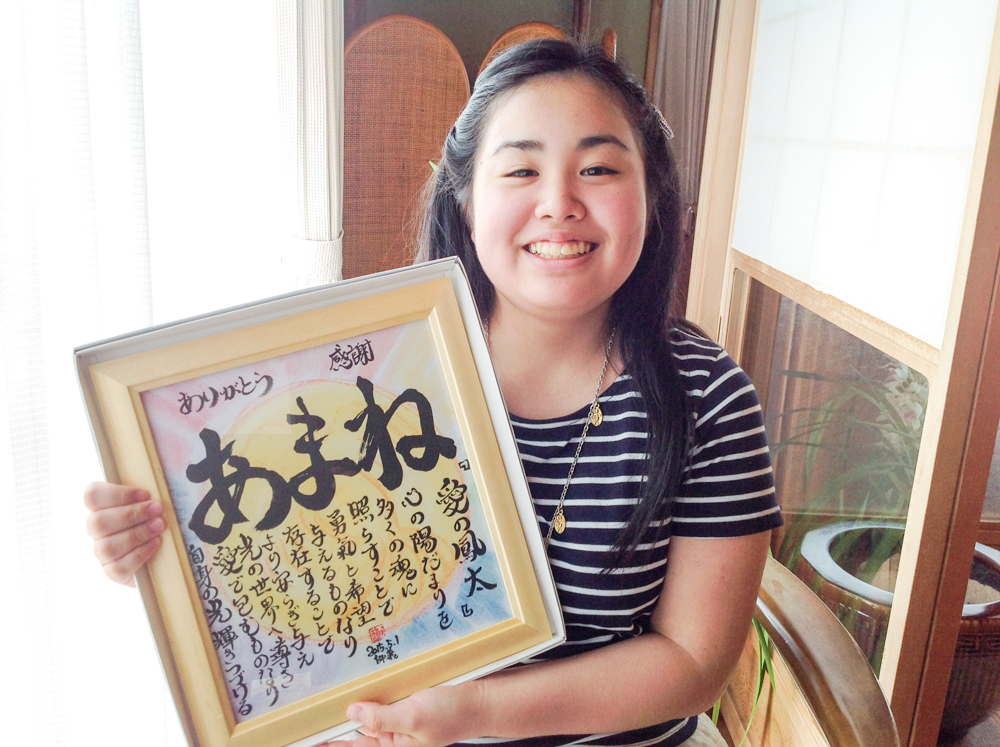 ありがとう
感謝
あまね
『愛の鳳太』
心の陽だまりを
多くの魂に
照らすことで
勇氣と希望
与えるものなり
存在することで
より安らぎ与え
光の世界へ導き
愛で包むものなり
自身の光輝きつづける
2015.5.1